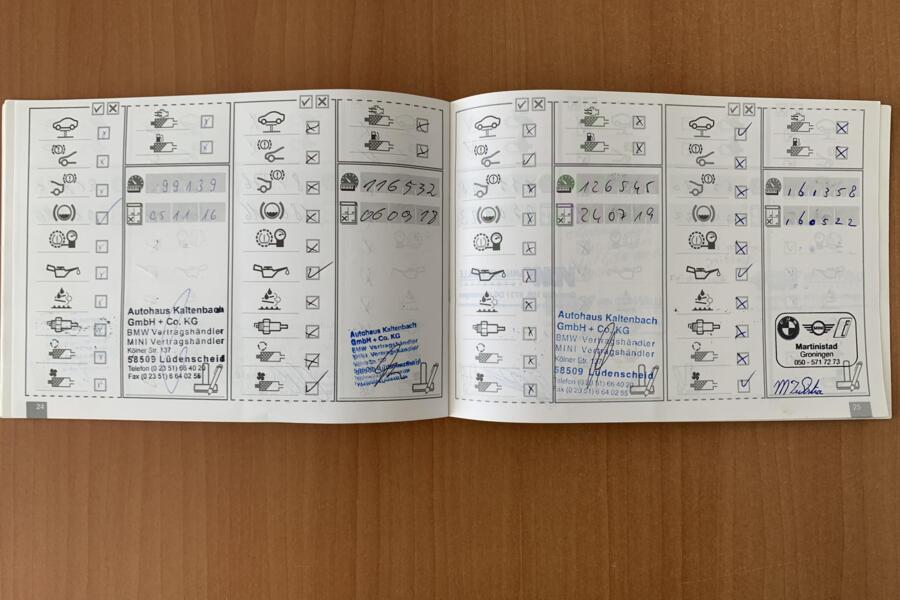 99139
05 11 16
Autohaus Kaltenbach
GmbH + Co. KG
BMW Vertragshändler
MINI Vertragshändler
Kölner Str. 137
58509 Lüdenscheid
Telefon (0 23 51) 66 40 20
Fax (0 23 51) 6 64 02 55
24
116532
Autohaus Kaltenbach
GmbH + Co. KG
BMW Vertragshändler
126545
24 07 19
Autohaus Kaltenbach
GmbH + Co. KG
BMW Vertragshändler
MINI Vertragshändler
Kölner Str. 137
58509 Lüdenscheid
Telefon (0 23 51) 66 40 20
Fax (0 23 51) 6 64 02 55
161358
160522
MINI
Martinistad
Groningen
050 - 571 72 73
25